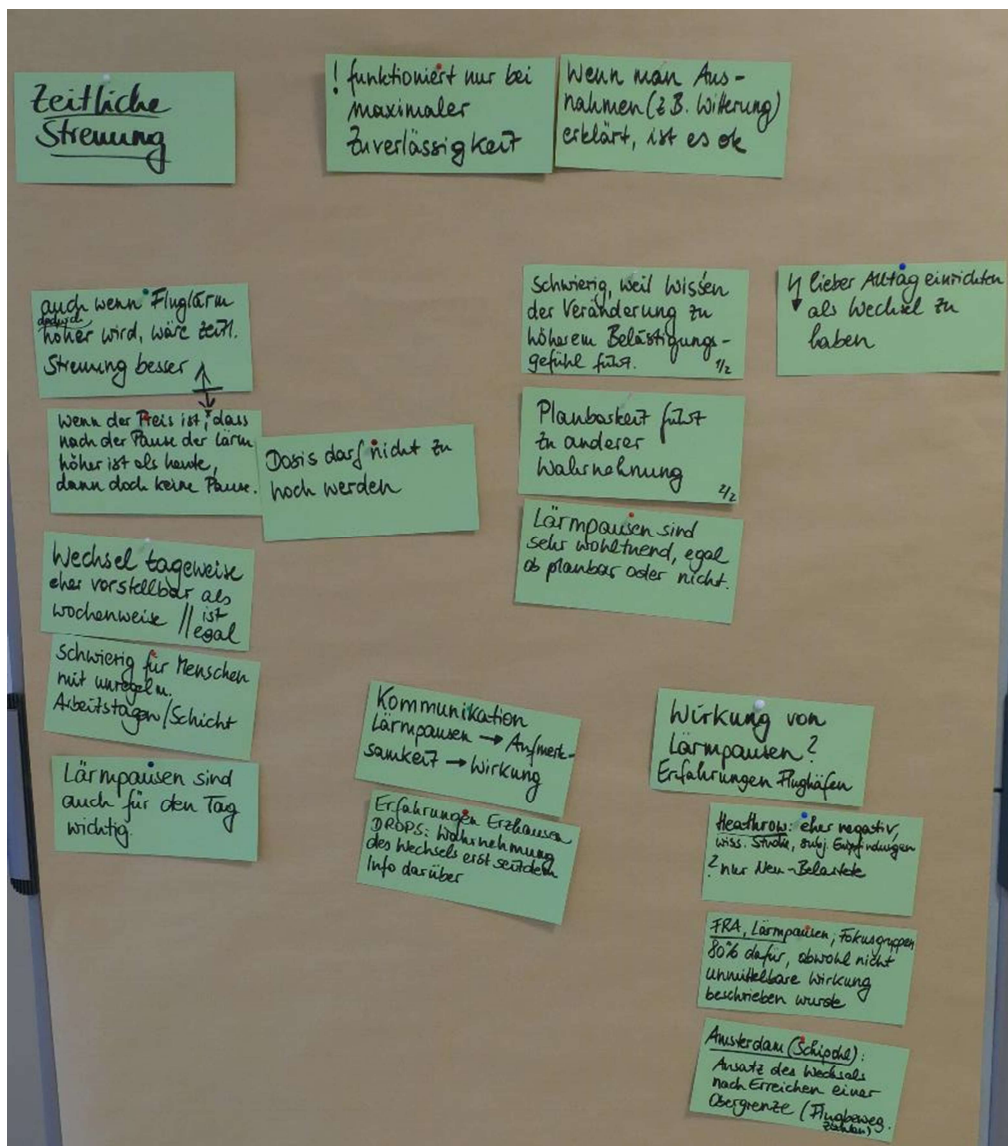 Zeitliche
Streuung
! funktioniert nur bei
maximaler
Zuverlässigkeit
Wenn man Aus-
nahmen (z.B. Witterung)
erklärt, ist es ok
auch wenn Fluglärm
dadurch
höher wird, wäre zeitl.
Streuung besser
wenn der Preis ist, dass
nach der Pause der Lärm
höher ist als heute,
dann doch keine Pause.
Dosis darf nicht zu
hoch werden
Wechsel tageweise
eher vorstellbar als
wochenweise // ist
egal
Schwierig für Menschen
mit unregelm.
Arbeitstagen/Schicht
Lärmpausen sind
auch für den Tag
wichtig.
Schwierig, weil Wissen
der Veränderung zu
höherem Belästigungs-
gefühl führt. 1/2
Planbarkeit führt
zu anderer
Wahrnehmung
2/2
Lärmpausen sind
sehr wohltuend, egal
ob planbar oder nicht.
lieber Alltag einrichten
als Wechsel zu
haben
Kommunikation
Lärmpausen → Aufmerk-
samkeit → Wirkung
Erfahrungen Erzhausen
DROPS: Wahrnehmung
des Wechsels erst seitdem
Info darüber
Wirkung von
Lärmpausen?
Erfahrungen Flughäfen
Heathrow: eher negativ,
wiss. Studie, subj. Empfindungen
? nur Neu-Belastete
FRA, Lärmpausen, Fokusgruppen
80% dafür, obwohl nicht
unmittelbare Wirkung
beschrieben wurde
Amsterdam (Schiphol):
Ansatz des Wechsels
nach Erreichen einer
Obergrenze (Flugbeweg.
zahlen)